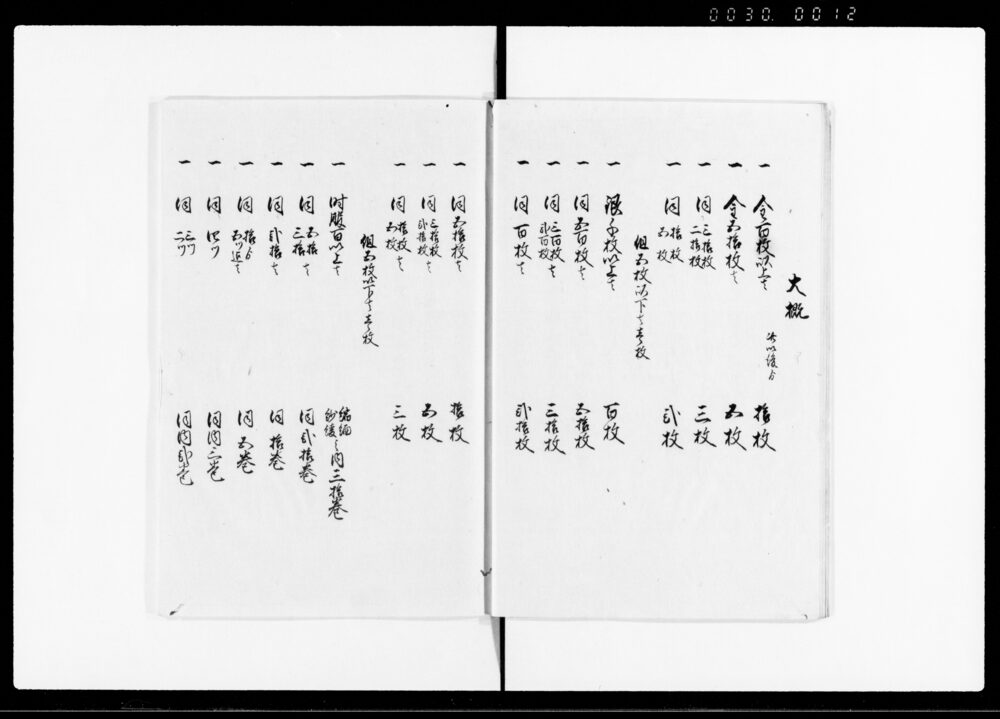 0030. 0012
大概
此以後ゟ
一 金百枚以上ハ 拾枚
一 金五拾枚ハ 五枚
一 同 三拾枚 二拾枚 三枚
一 同 拾枚 五枚 弐枚
但五枚以下ハ壱枚
一 銀千枚以上ハ 百枚
一 同五百枚ハ 五拾枚
一 同 三百枚 弐百枚ハ 三拾枚
一 同百枚ハ 弐拾枚
一 同五拾枚ハ 拾枚
一 同 三拾枚 弐拾枚ハ 五枚
一 同 拾枚 五枚ハ 三枚
但五枚以下ハ壱枚
一 時服百以上ハ 縮緬 紗綾之内三拾巻
一 同 五拾 三拾ハ 同弐拾巻
一 同弐拾ハ 同拾巻
一 同 拾ゟ 五ツ迄ハ 同五巻
一 同四ツ 同内三巻
一 同 三ツ 二ツ 同内弐巻